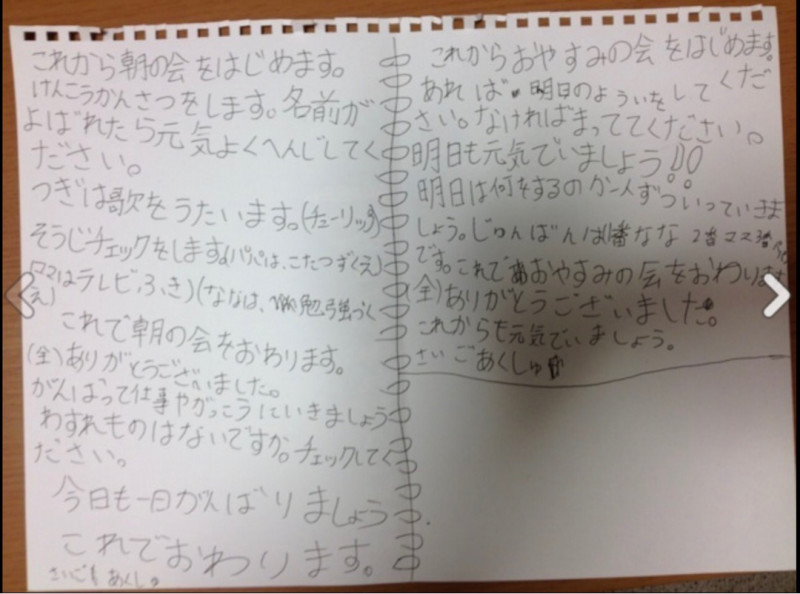 これから朝の会をはじめます。
けんこうかんさつをします。名前が
よばれたら元気よくへんじしてく
ださい。
つぎは歌をうたいます。(チューリップ)
そうじチェックをします。(パパは、こたつ、ずくえ)
(ママはテレビ、ふき)(ななは、勉強づく
え)
これで朝の会をおわります。
(全)ありがとうございました。
がんばって仕事やがっこうにいきましょう
わすれものはないですか。チェックしてく
ださい。
今日も一日がんばりましょう
これでおわります。
さいごもあくし。
これからおやすみの会をはじめます。
あれば明日のよういをしてくだ
さい。なければまっててください。
明日も元気でいましょう!!
明日は何をするのか一人ずついっていきま
しょう。じゅんばんは1番なな2番ママ3番パパ
です。これでおやすみの会をおわります
(全)ありがとうございました。
これからも元気でいましょう。
さいごあくしゅ